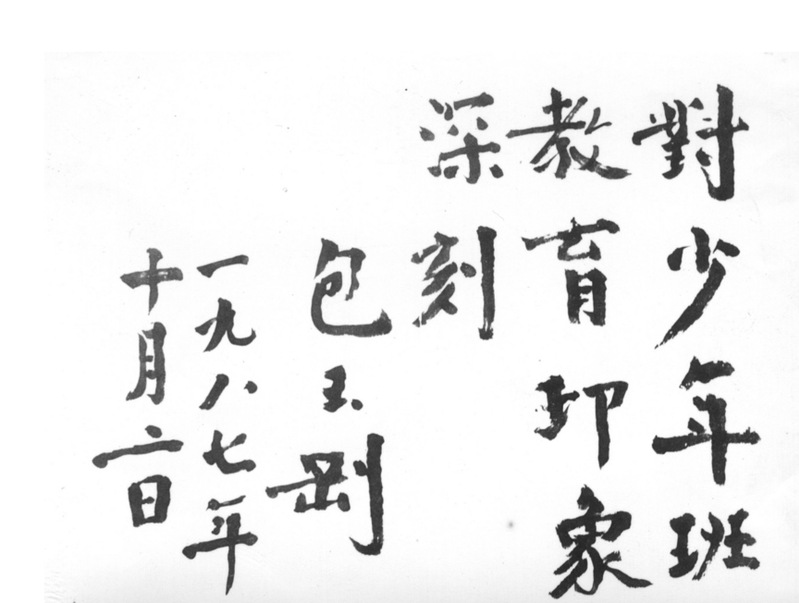 對少年班
教育印象
深刻
包玉刚
一九八七年
十月二日